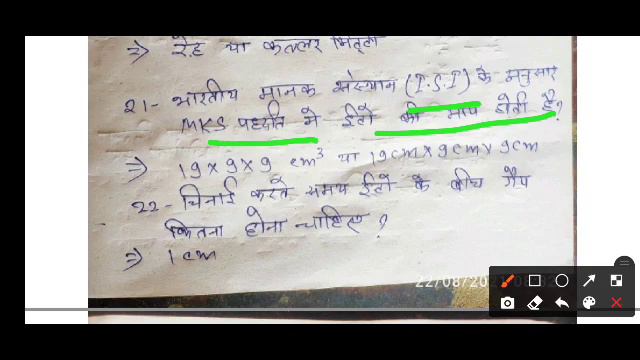 ⇒ रेह या कल्लर मिट्टी
21- भारतीय मानक संस्थान (I.S.I) के अनुसार
MKS पद्धति मे ईटो की माप होती है?
⇒ 19×9×9 cm³ या 19cm×9cm×9cm
22- चिनाई करते समय ईटो के बीच गैप
कितना होना चाहिए?
⇒ 1cm
22/08/202